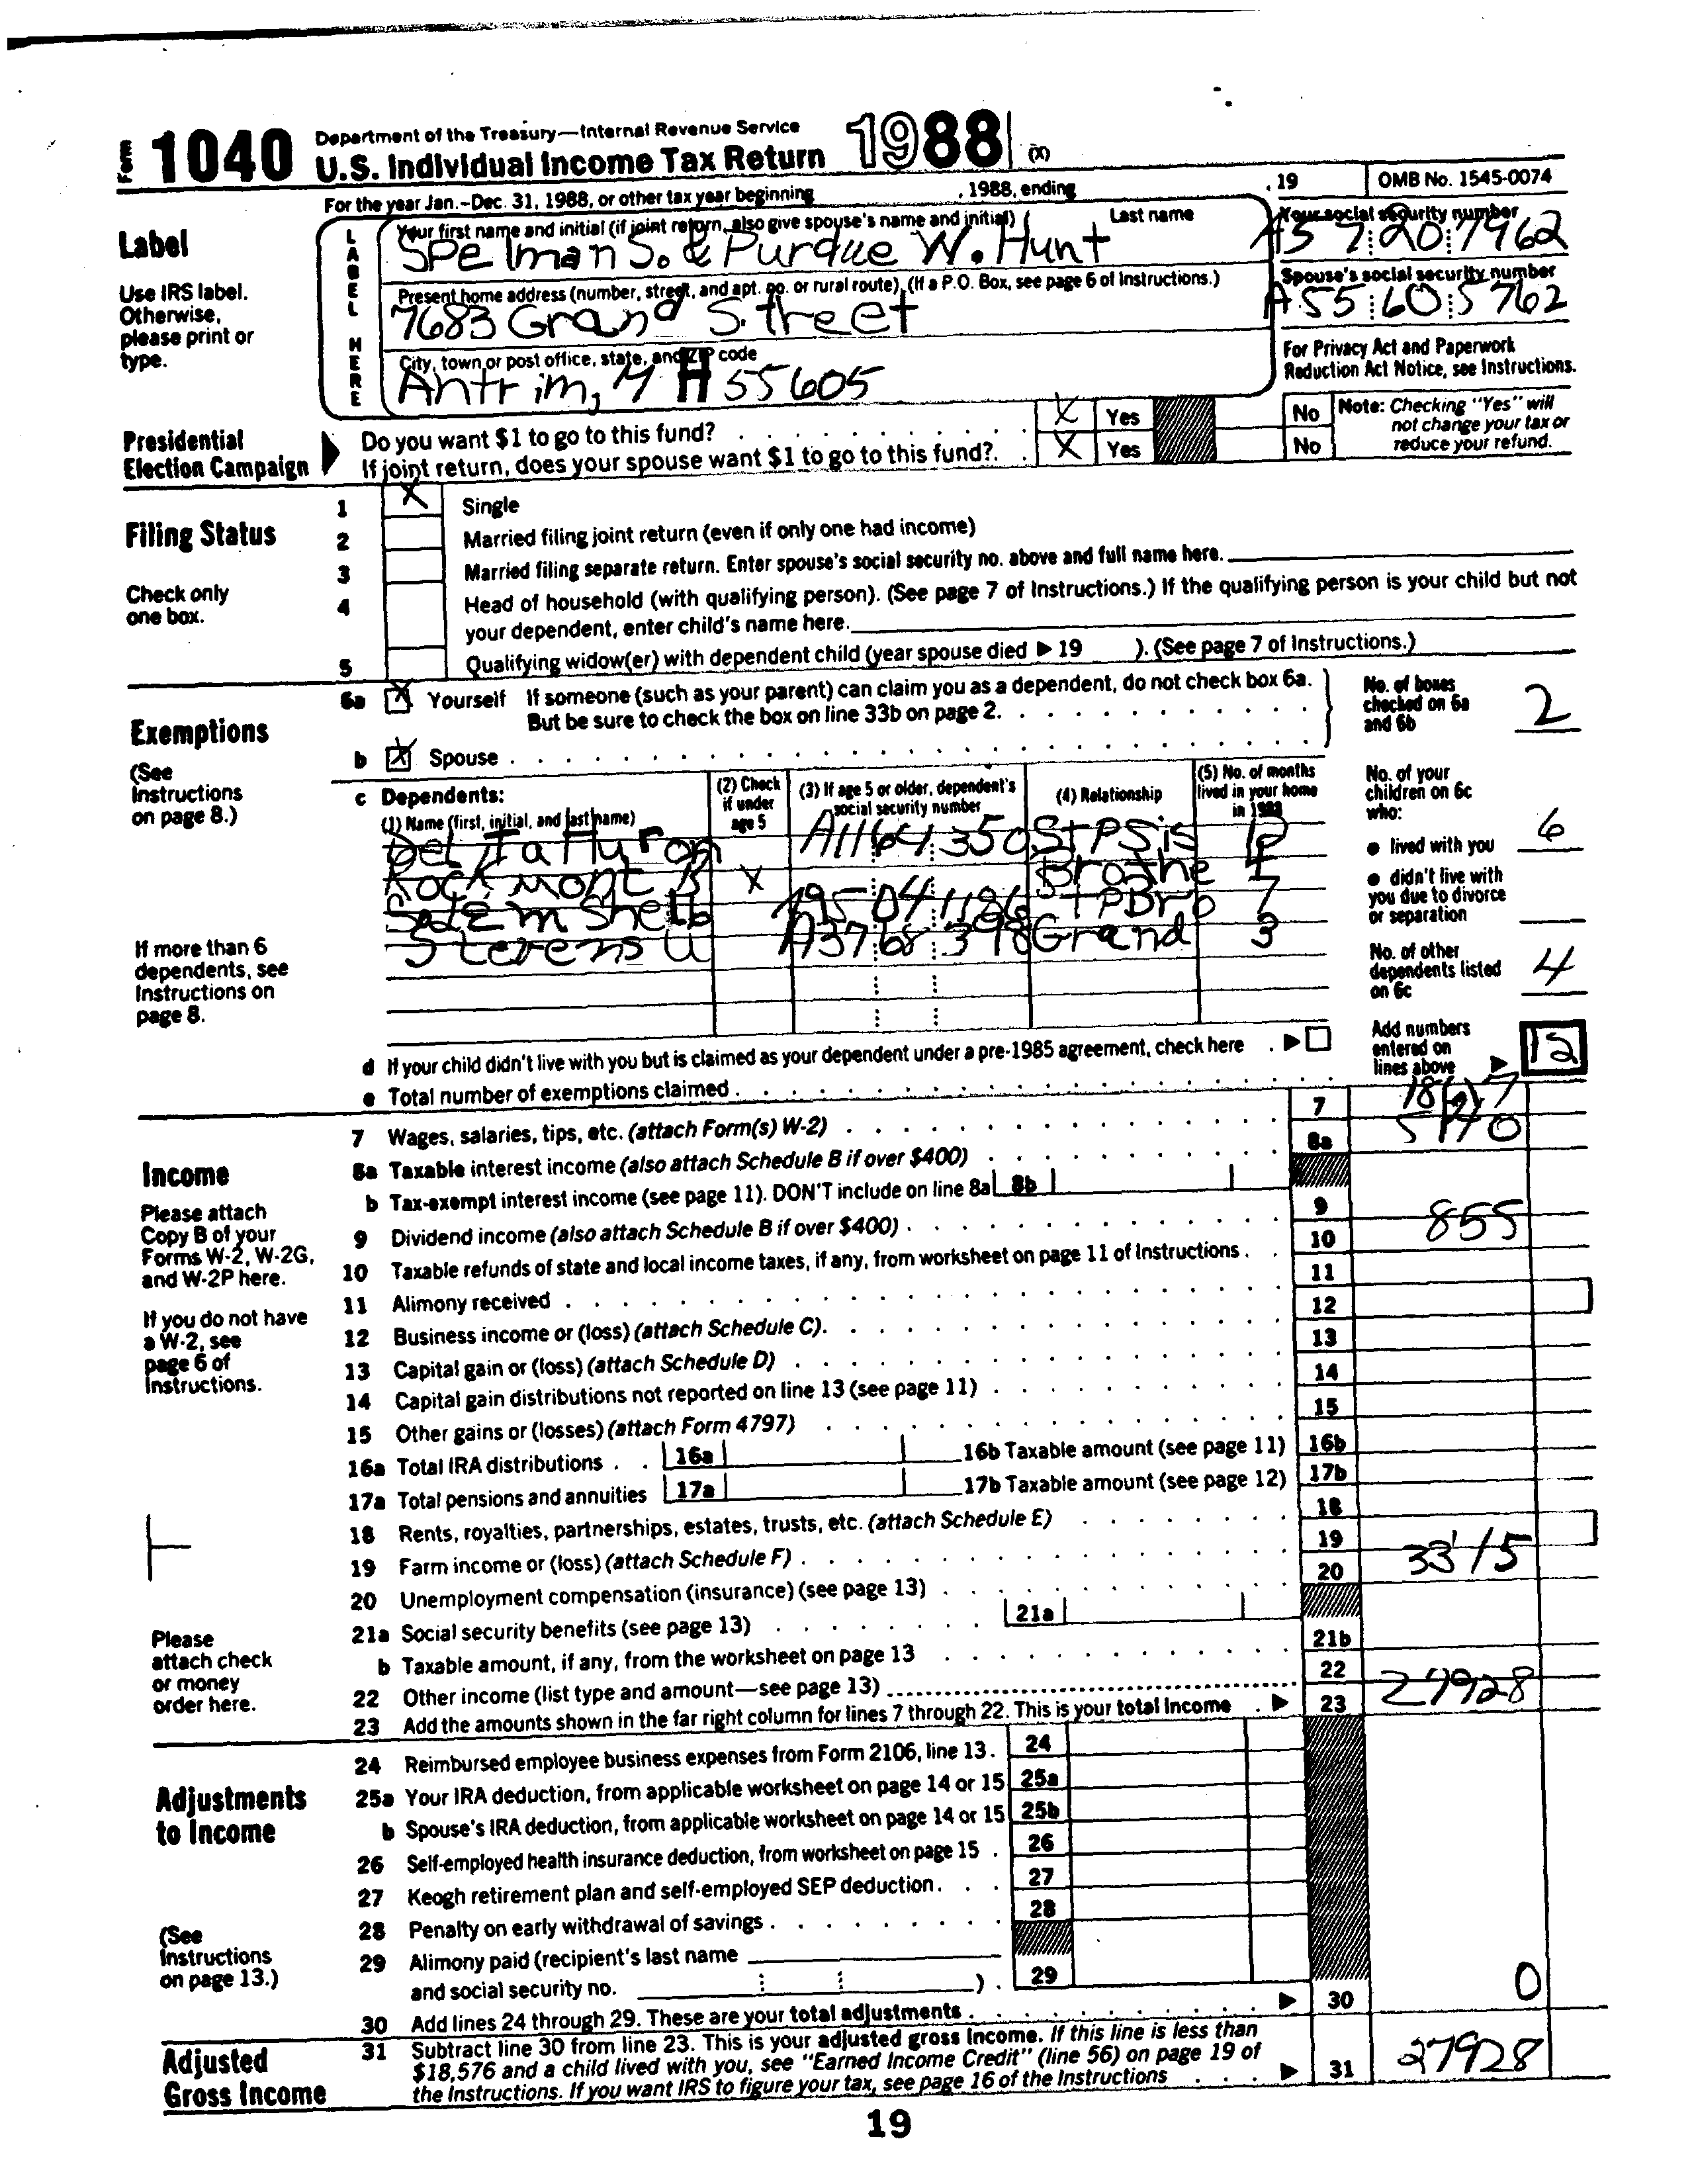 Form 1040 Department of the Treasury—Internal Revenue Service
U.S. Individual Income Tax Return 1988 (X)
For the year Jan.-Dec. 31, 1988, or other tax year beginning , 1988, ending , 19 OMB No. 1545-0074
Label
Use IRS label.
Otherwise,
please print or
type.
LABEL HERE
Your first name and initial (if joint return, also give spouse's name and initial) Last name
Spelman S. & Purdue W. Hunt
Your social security number
A57 20 7962
Present home address (number, street, and apt. no. or rural route). (If a P.O. Box, see page 6 of Instructions.)
7683 Grand Street
Spouse's social security number
A55 60 5762
City, town or post office, state, and ZIP code
Antrim, MH 55605
For Privacy Act and Paperwork
Reduction Act Notice, see Instructions.
Presidential
Election Campaign
Do you want $1 to go to this fund? X Yes No
If joint return, does your spouse want $1 to go to this fund? X Yes No
Note: Checking "Yes" will
not change your tax or
reduce your refund.
Filing Status
Check only
one box.
1 X Single
2 Married filing joint return (even if only one had income)
3 Married filing separate return. Enter spouse's social security no. above and full name here.
4 Head of household (with qualifying person). (See page 7 of Instructions.) If the qualifying person is your child but not
your dependent, enter child's name here.
5 Qualifying widow(er) with dependent child (year spouse died ▶ 19 ). (See page 7 of Instructions.)
Exemptions
(See
Instructions
on page 8.)
If more than 6
dependents, see
Instructions on
page 8.
6a X Yourself If someone (such as your parent) can claim you as a dependent, do not check box 6a.
But be sure to check the box on line 33b on page 2.
b X Spouse
No. of boxes
checked on 6a
and 6b 2
c Dependents:
(1) Name (first, initial, and last name)
(2) Check
if under
age 5
(3) If age 5 or older, dependent's
social security number
(4) Relationship
(5) No. of months
lived in your home
in 1988
Delta Huron A11 64 350 StPSis 12
Rockmont B X Brothe
Salem Shelb 195 04 1186 StPBro 7
Sterens U A37 68 398 Grand 3
No. of your
children on 6c
who:
● lived with you 6
● didn't live with
you due to divorce
or separation
No. of other
dependents listed
on 6c 4
Add numbers
entered on
lines above ▶ 12
d If your child didn't live with you but is claimed as your dependent under a pre-1985 agreement, check here ▶
e Total number of exemptions claimed
Income
Please attach
Copy B of your
Forms W-2, W-2G,
and W-2P here.
If you do not have
a W-2, see
page 6 of
Instructions.
Please
attach check
or money
order here.
7 Wages, salaries, tips, etc. (attach Form(s) W-2) 7
8a Taxable interest income (also attach Schedule B if over $400) 8a
b Tax-exempt interest income (see page 11). DON'T include on line 8a 8b
9 Dividend income (also attach Schedule B if over $400) 9 855
10 Taxable refunds of state and local income taxes, if any, from worksheet on page 11 of Instructions 10
11 Alimony received 11
12 Business income or (loss) (attach Schedule C) 12
13 Capital gain or (loss) (attach Schedule D) 13
14 Capital gain distributions not reported on line 13 (see page 11) 14
15 Other gains or (losses) (attach Form 4797) 15
16a Total IRA distributions 16a 16b Taxable amount (see page 11) 16b
17a Total pensions and annuities 17a 17b Taxable amount (see page 12) 17b
18 Rents, royalties, partnerships, estates, trusts, etc. (attach Schedule E) 18
19 Farm income or (loss) (attach Schedule F) 19
20 Unemployment compensation (insurance) (see page 13) 20 3315
21a Social security benefits (see page 13) 21a
b Taxable amount, if any, from the worksheet on page 13 21b
22 Other income (list type and amount—see page 13) 22
23 Add the amounts shown in the far right column for lines 7 through 22. This is your total income ▶ 23 27928
Adjustments
to Income
(See
Instructions
on page 13.)
24 Reimbursed employee business expenses from Form 2106, line 13 24
25a Your IRA deduction, from applicable worksheet on page 14 or 15 25a
b Spouse's IRA deduction, from applicable worksheet on page 14 or 15 25b
26 Self-employed health insurance deduction, from worksheet on page 15 26
27 Keogh retirement plan and self-employed SEP deduction 27
28 Penalty on early withdrawal of savings 28
29 Alimony paid (recipient's last name
and social security no. ) 29
30 Add lines 24 through 29. These are your total adjustments ▶ 30 0
Adjusted
Gross Income
31 Subtract line 30 from line 23. This is your adjusted gross income. If this line is less than
$18,576 and a child lived with you, see "Earned Income Credit" (line 56) on page 19 of
the Instructions. If you want IRS to figure your tax, see page 16 of the Instructions ▶ 31 27928
19